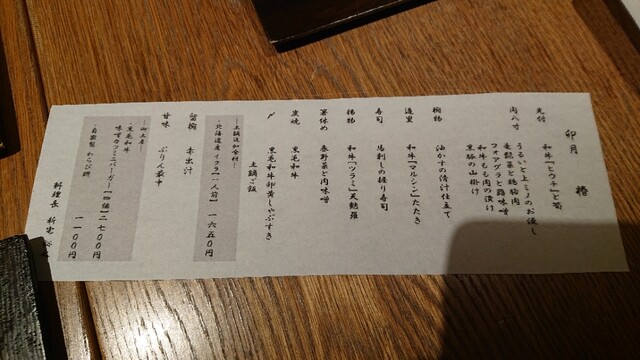 卯月　椿
先付　和牛「ヒウチ」と筍
肉八寸　うるいと上ミノのお浸し
菜の花と鶏胸肉
フォアグラと蕗味噌
和牛もも肉の漬け
黒豚の山掛け
椀物　油かすの清汁仕立て
造里　和牛「マルシン」たたき
寿司　馬刺しの握り寿司
揚物　和牛「ツラミ」天麩羅
箸休め　春野菜と肉味噌
炭焼　黒毛和牛
〆　黒毛和牛卵黄しゃぶすき
土鍋ご飯
―土鍋追加食材―
・北海道産イクラ【一人前】　一六五〇円
留椀　赤出汁
甘味　ぷりん最中
―御土産―
・黒毛和牛
味噌カツミニバーガー【四個】二七〇〇円
・自家製　わらび餅　一一〇〇円
料理長　新宅